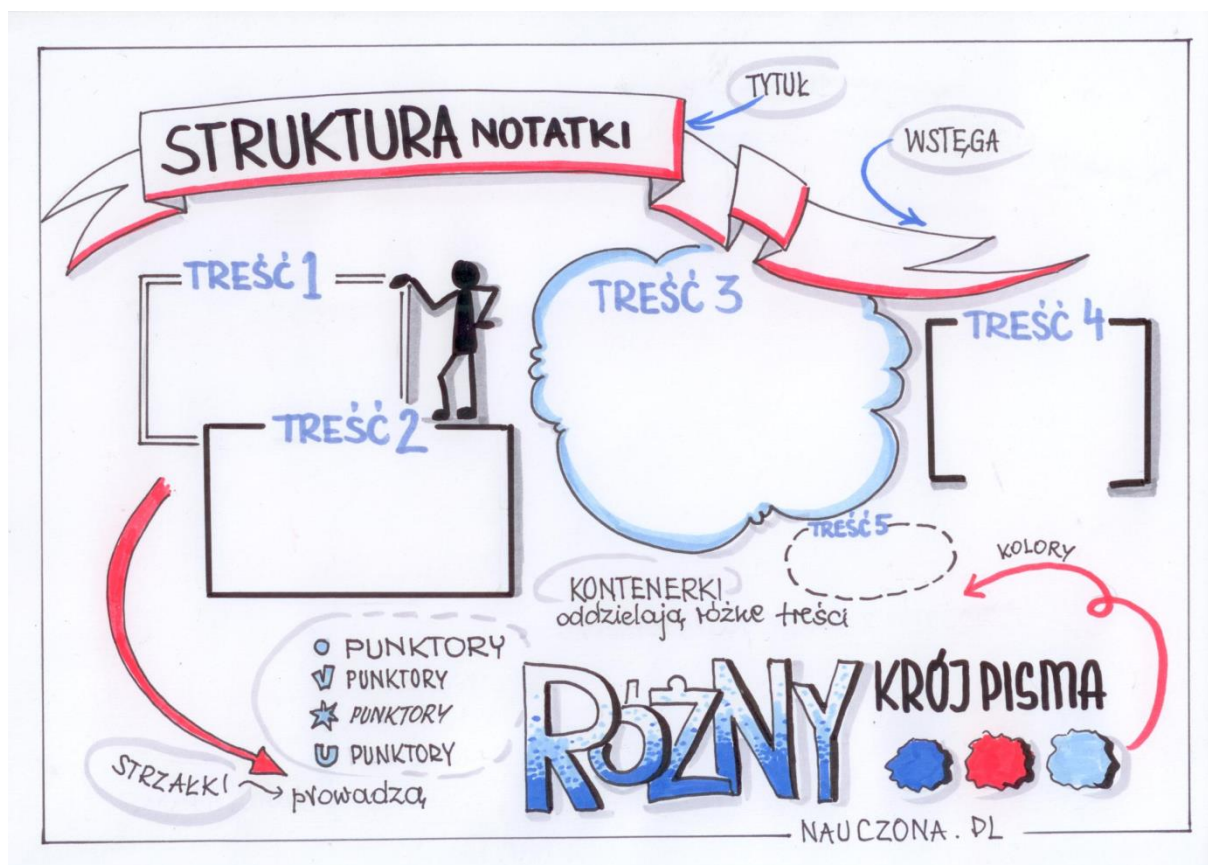 STRUKTURA NOTATKI
TYTUŁ
WSTĘGA
TREŚĆ 1
TREŚĆ 2
TREŚĆ 3
TREŚĆ 4
TREŚĆ 5
KONTENERKI
oddzielają różne treści
KOLORY
PUNKTORY
PUNKTORY
PUNKTORY
PUNKTORY
STRZAŁKI
prowadzą
RÓŻNY KRÓJ PISMA
NAUCZONA.PL